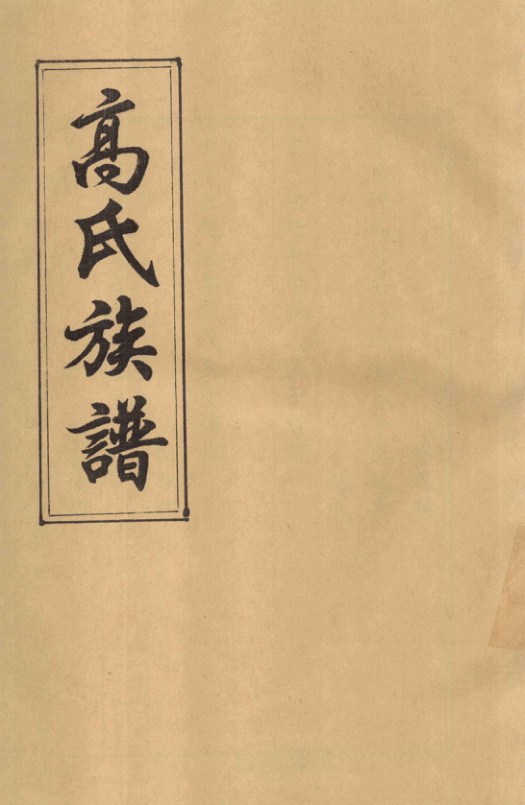 高氏族譜